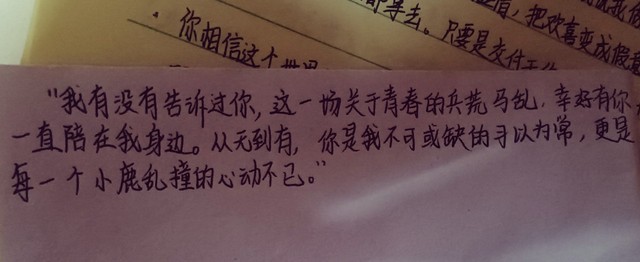 把欢喜变成假
等去。只要是交付于
· 你相信这个
“我有没有告诉过你，这一场关于青春的兵荒马乱，幸好有你，
一直陪在我身边。从无到有，你是我不可或缺的习以为常，更是
每一个小鹿乱撞的心动不已。”